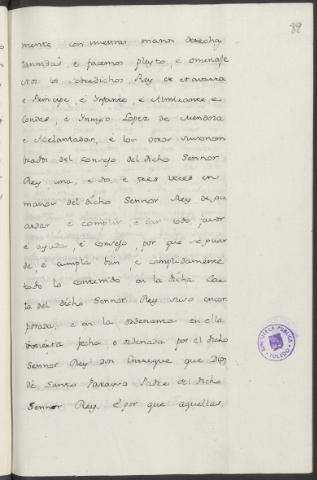 89
mente con nuestras manos derechas
tannidas, e facemos pleyto, e omenaje
nos los sobredichos, Rey de Navarra
e Principe, e Infante, e Almirante, e
Condes, e Innigo Lopez de Mendoza
e Adelantados, e los otros suso nom
brados del consejo del dicho Sennor
Rey una, e dos, e tres veces en
manos del dicho Sennor Rey de, gu
ardar e complir, e dar todo favor
e ayuda, e consejo, por que se guar
de, e cumpla bien, e complidamente
todo lo contenido en la dicha Car
ta del dicho Sennor Rey suso encor
porada, e en la ordenanza en ella
fecha, e ordenada por el dicho
Sennor Rey Don Enrique que Dios
dé, Santo Parayso Padre del dicho
Sennor Rey. E por que aquellas,
BIBLIOTECA PUBLICA
TOLEDO